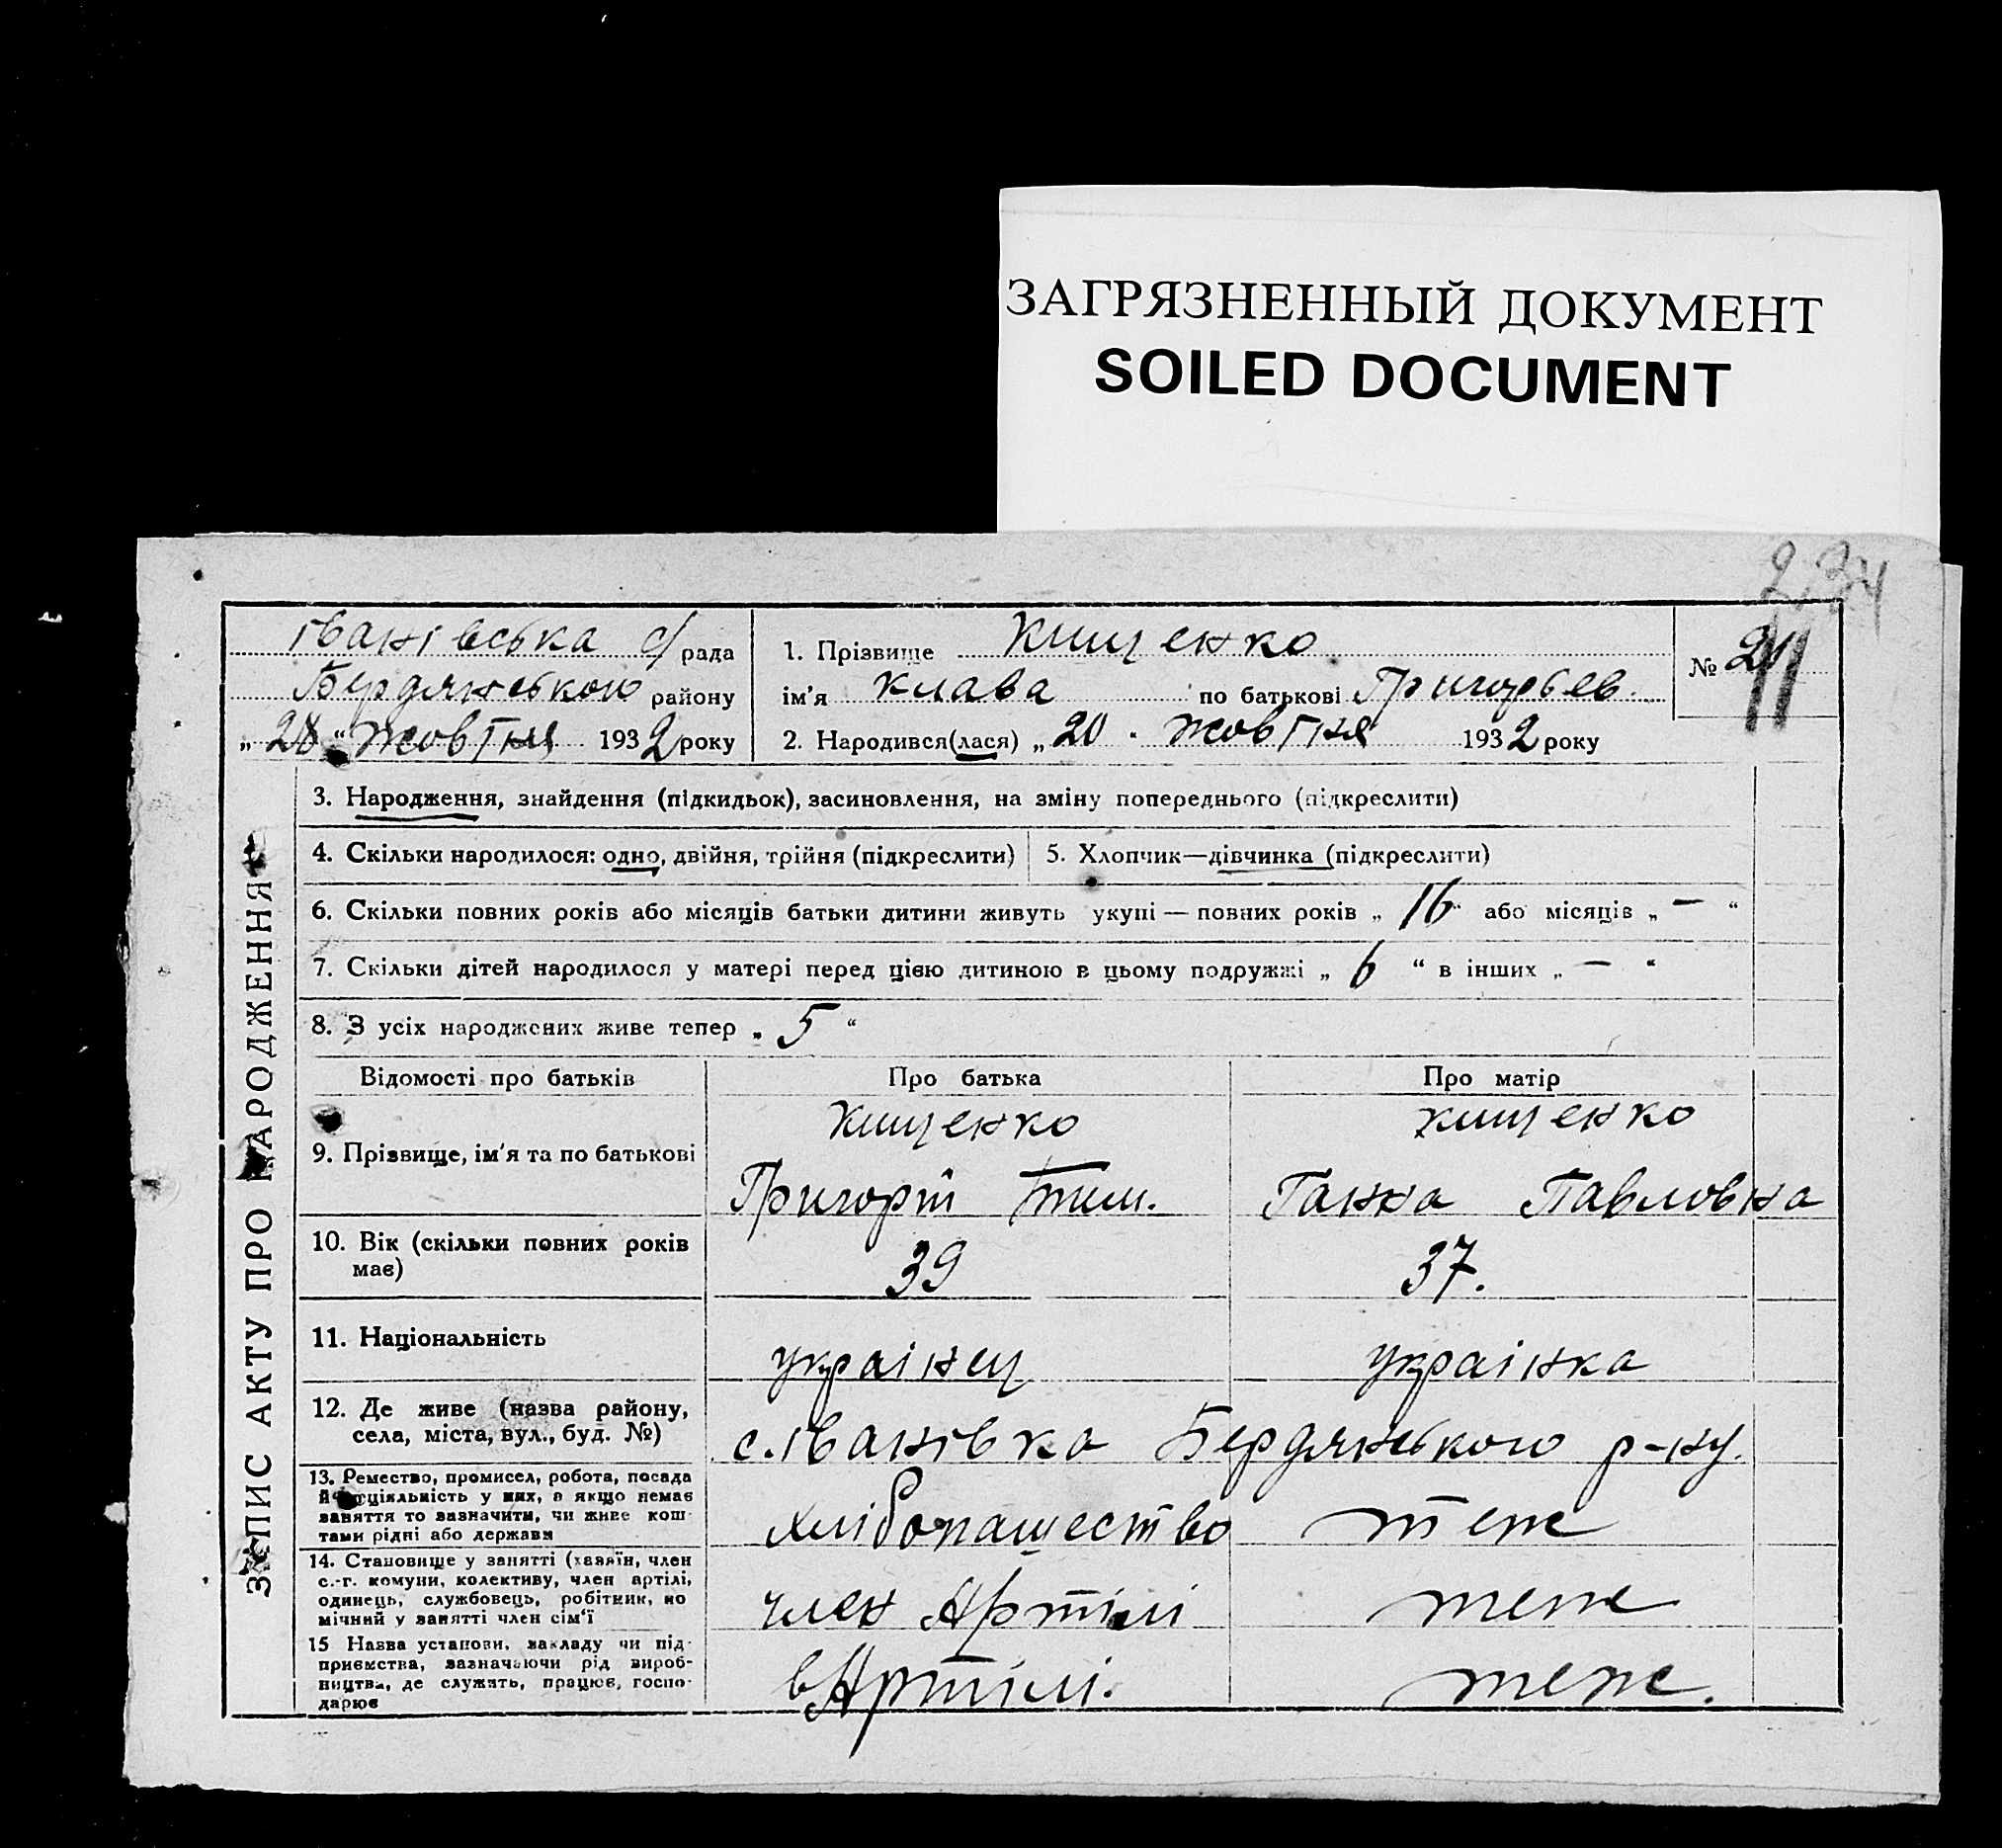 ЗАГРЯЗНЕННЫЙ ДОКУМЕНТ
SOILED DOCUMENT
234
Іванівська с/рада
Бердянського району
„28“ жовтня 1932 року
1. Прізвище Кищенко
ім'я Клава по батькові Григорьев.
2. Народився(лася) „20 жовтня 1932 року
№
ЗАПИС АКТУ ПРО НАРОДЖЕННЯ
3. Народження, знайдення (підкидьок), засиновлення, на зміну попереднього (підкреслити)
4. Скільки народилося: одно, двійня, трійня (підкреслити)
5. Хлопчик—дівчинка (підкреслити)
6. Скільки повних років або місяців батьки дитини живуть укупі — повних років „16“ або місяців „—“
7. Скільки дітей народилося у матері перед цією дитиною в цьому подружжі „6“ в інших „—“
8. З усіх народжених живе тепер „5“
Відомості про батьків
Про батька
Про матір
9. Прізвище, ім'я та по батькові
Кищенко
Григорій Тим.
Кищенко
Ганна Павловна
10. Вік (скільки повних років
має)
39
37.
11. Національність
українец
українка
12. Де живе (назва району,
села, міста, вул., буд. №)
с. Іванівка Бердянського р-ну.
13. Ремество, промисел, робота, посада
й спеціяльність у них, а якщо немає
заняття то зазначити, чи живе кош-
тами рідні або держави
хлібопашество
теж
14. Становище у занятті (хазяїн, член
с.-г. комуни, колективу, член артілі,
одинець, службовець, робітник, по
мічний у занятті член сім'ї
член Артілі
теж
15 Назва установи, закладу чи під-
приємства, зазначаючи рід вироб-
ництва, де служить, працює, госпо-
дарює
в Артілі.
теж.